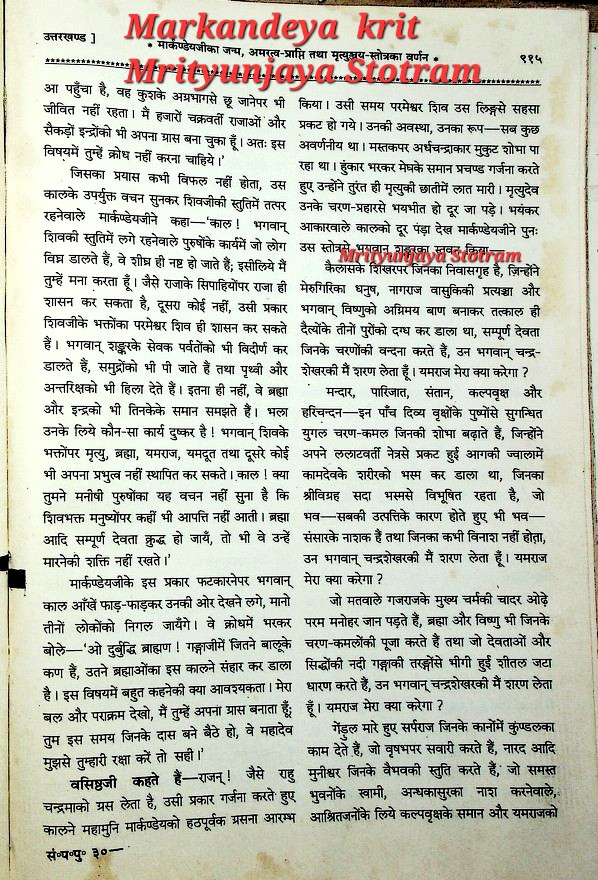 Markandeya krit
उत्तरखण्ड ]
• मार्कण्डेयजीका जन्म, अमरत्व-प्राप्ति तथा मृत्युञ्जय-स्तोत्रका वर्णन •
९१५
Mrityunjaya Stotram
आ पहुँचा है, वह कुशके अग्रभागसे छू जानेपर भी
जीवित नहीं रहता। मैं हजारों चक्रवर्ती राजाओं और
सैकड़ों इन्द्रोंको भी अपना ग्रास बना चुका हूँ। अतः इस
विषयमें तुम्हें क्रोध नहीं करना चाहिये।'
जिसका प्रयास कभी विफल नहीं होता, उस
कालके उपर्युक्त वचन सुनकर शिवजीकी स्तुतिमें तत्पर
रहनेवाले मार्कण्डेयजीने कहा—'काल! भगवान्
शिवकी स्तुतिमें लगे रहनेवाले पुरुषोंके कार्यमें जो लोग
विघ्न डालते हैं, वे शीघ्र ही नष्ट हो जाते हैं; इसीलिये मैं
तुम्हें मना करता हूँ। जैसे राजाके सिपाहियोंपर राजा ही
शासन कर सकता है, दूसरा कोई नहीं, उसी प्रकार
शिवजीके भक्तोंका परमेश्वर शिव ही शासन कर सकते
हैं। भगवान् शङ्करके सेवक पर्वतोंको भी विदीर्ण कर
डालते हैं, समुद्रोंको भी पी जाते हैं तथा पृथ्वी और
अन्तरिक्षको भी हिला देते हैं। इतना ही नहीं, वे ब्रह्मा
और इन्द्रको भी तिनकेके समान समझते हैं। भला
उनके लिये कौन-सा कार्य दुष्कर है! भगवान् शिवके
भक्तोंपर मृत्यु, ब्रह्मा, यमराज, यमदूत तथा दूसरे कोई
भी अपना प्रभुत्व नहीं स्थापित कर सकते। काल! क्या
तुमने मनीषी पुरुषोंका यह वचन नहीं सुना है कि
शिवभक्त मनुष्योंपर कहीं भी आपत्ति नहीं आती। ब्रह्मा
आदि सम्पूर्ण देवता क्रुद्ध हो जायँ, तो भी वे उन्हें
मारनेकी शक्ति नहीं रखते।'
मार्कण्डेयजीके इस प्रकार फटकारनेपर भगवान्
काल आँखें फाड़-फाड़कर उनकी ओर देखने लगे, मानो
तीनों लोकोंको निगल जायँगे। वे क्रोधमें भरकर
बोले—'ओ दुर्बुद्धि ब्राह्मण! गङ्गाजीमें जितने बालूके
कण हैं, उतने ब्रह्माओंका इस कालने संहार कर डाला
है। इस विषयमें बहुत कहनेकी क्या आवश्यकता। मेरा
बल और पराक्रम देखो, मैं तुम्हें अपना ग्रास बनाता हूँ;
तुम इस समय जिनके दास बने बैठे हो, वे महादेव
मुझसे तुम्हारी रक्षा करें तो सही।'
वसिष्ठजी कहते हैं—राजन्! जैसे राहु
चन्द्रमाको ग्रस लेता है, उसी प्रकार गर्जना करते हुए
कालने महामुनि मार्कण्डेयको हठपूर्वक ग्रसना आरम्भ
सं॰प॰पु॰ ३०—
किया। उसी समय परमेश्वर शिव उस लिङ्गसे सहसा
प्रकट हो गये। उनकी अवस्था, उनका रूप—सब कुछ
अवर्णनीय था। मस्तकपर अर्धचन्द्राकार मुकुट शोभा पा
रहा था। हुंकार भरकर मेघके समान प्रचण्ड गर्जना करते
हुए उन्होंने तुरंत ही मृत्युकी छातीमें लात मारी। मृत्युदेव
उनके चरण-प्रहारसे भयभीत हो दूर जा पड़े। भयंकर
आकारवाले कालको दूर पड़ा देख मार्कण्डेयजीने पुनः
उस स्तोत्रसे भगवान् शङ्करका स्तवन किया—
Mrityunjaya Stotram
कैलासके शिखरपर जिनका निवासगृह है, जिन्होंने
मेरुगिरिका धनुष, नागराज वासुकिकी प्रत्यञ्चा और
भगवान् विष्णुको अग्निमय बाण बनाकर तत्काल ही
दैत्योंके तीनों पुरोंको दग्ध कर डाला था, सम्पूर्ण देवता
जिनके चरणोंकी वन्दना करते हैं, उन भगवान् चन्द्र-
शेखरकी मैं शरण लेता हूँ। यमराज मेरा क्या करेगा ?
मन्दार, पारिजात, संतान, कल्पवृक्ष और
हरिचन्दन—इन पाँच दिव्य वृक्षोंके पुष्पोंसे सुगन्धित
युगल चरण-कमल जिनकी शोभा बढ़ाते हैं, जिन्होंने
अपने ललाटवर्ती नेत्रसे प्रकट हुई आगकी ज्वालामें
कामदेवके शरीरको भस्म कर डाला था, जिनका
श्रीविग्रह सदा भस्मसे विभूषित रहता है, जो
भव—सबकी उत्पत्तिके कारण होते हुए भी भव—
संसारके नाशक हैं तथा जिनका कभी विनाश नहीं होता,
उन भगवान् चन्द्रशेखरकी मैं शरण लेता हूँ। यमराज
मेरा क्या करेगा ?
जो मतवाले गजराजके मुख्य चर्मकी चादर ओढ़े
परम मनोहर जान पड़ते हैं, ब्रह्मा और विष्णु भी जिनके
चरण-कमलोंकी पूजा करते हैं तथा जो देवताओं और
सिद्धोंकी नदी गङ्गाकी तरङ्गोंसे भीगी हुई शीतल जटा
धारण करते हैं, उन भगवान् चन्द्रशेखरकी मैं शरण लेता
हूँ। यमराज मेरा क्या करेगा ?
गेंडुल मारे हुए सर्पराज जिनके कानोंमें कुण्डलका
काम देते हैं, जो वृषभपर सवारी करते हैं, नारद आदि
मुनीश्वर जिनके वैभवकी स्तुति करते हैं, जो समस्त
भुवनोंके स्वामी, अन्धकासुरका नाश करनेवाले,
आश्रितजनोंके लिये कल्पवृक्षके समान और यमराजको